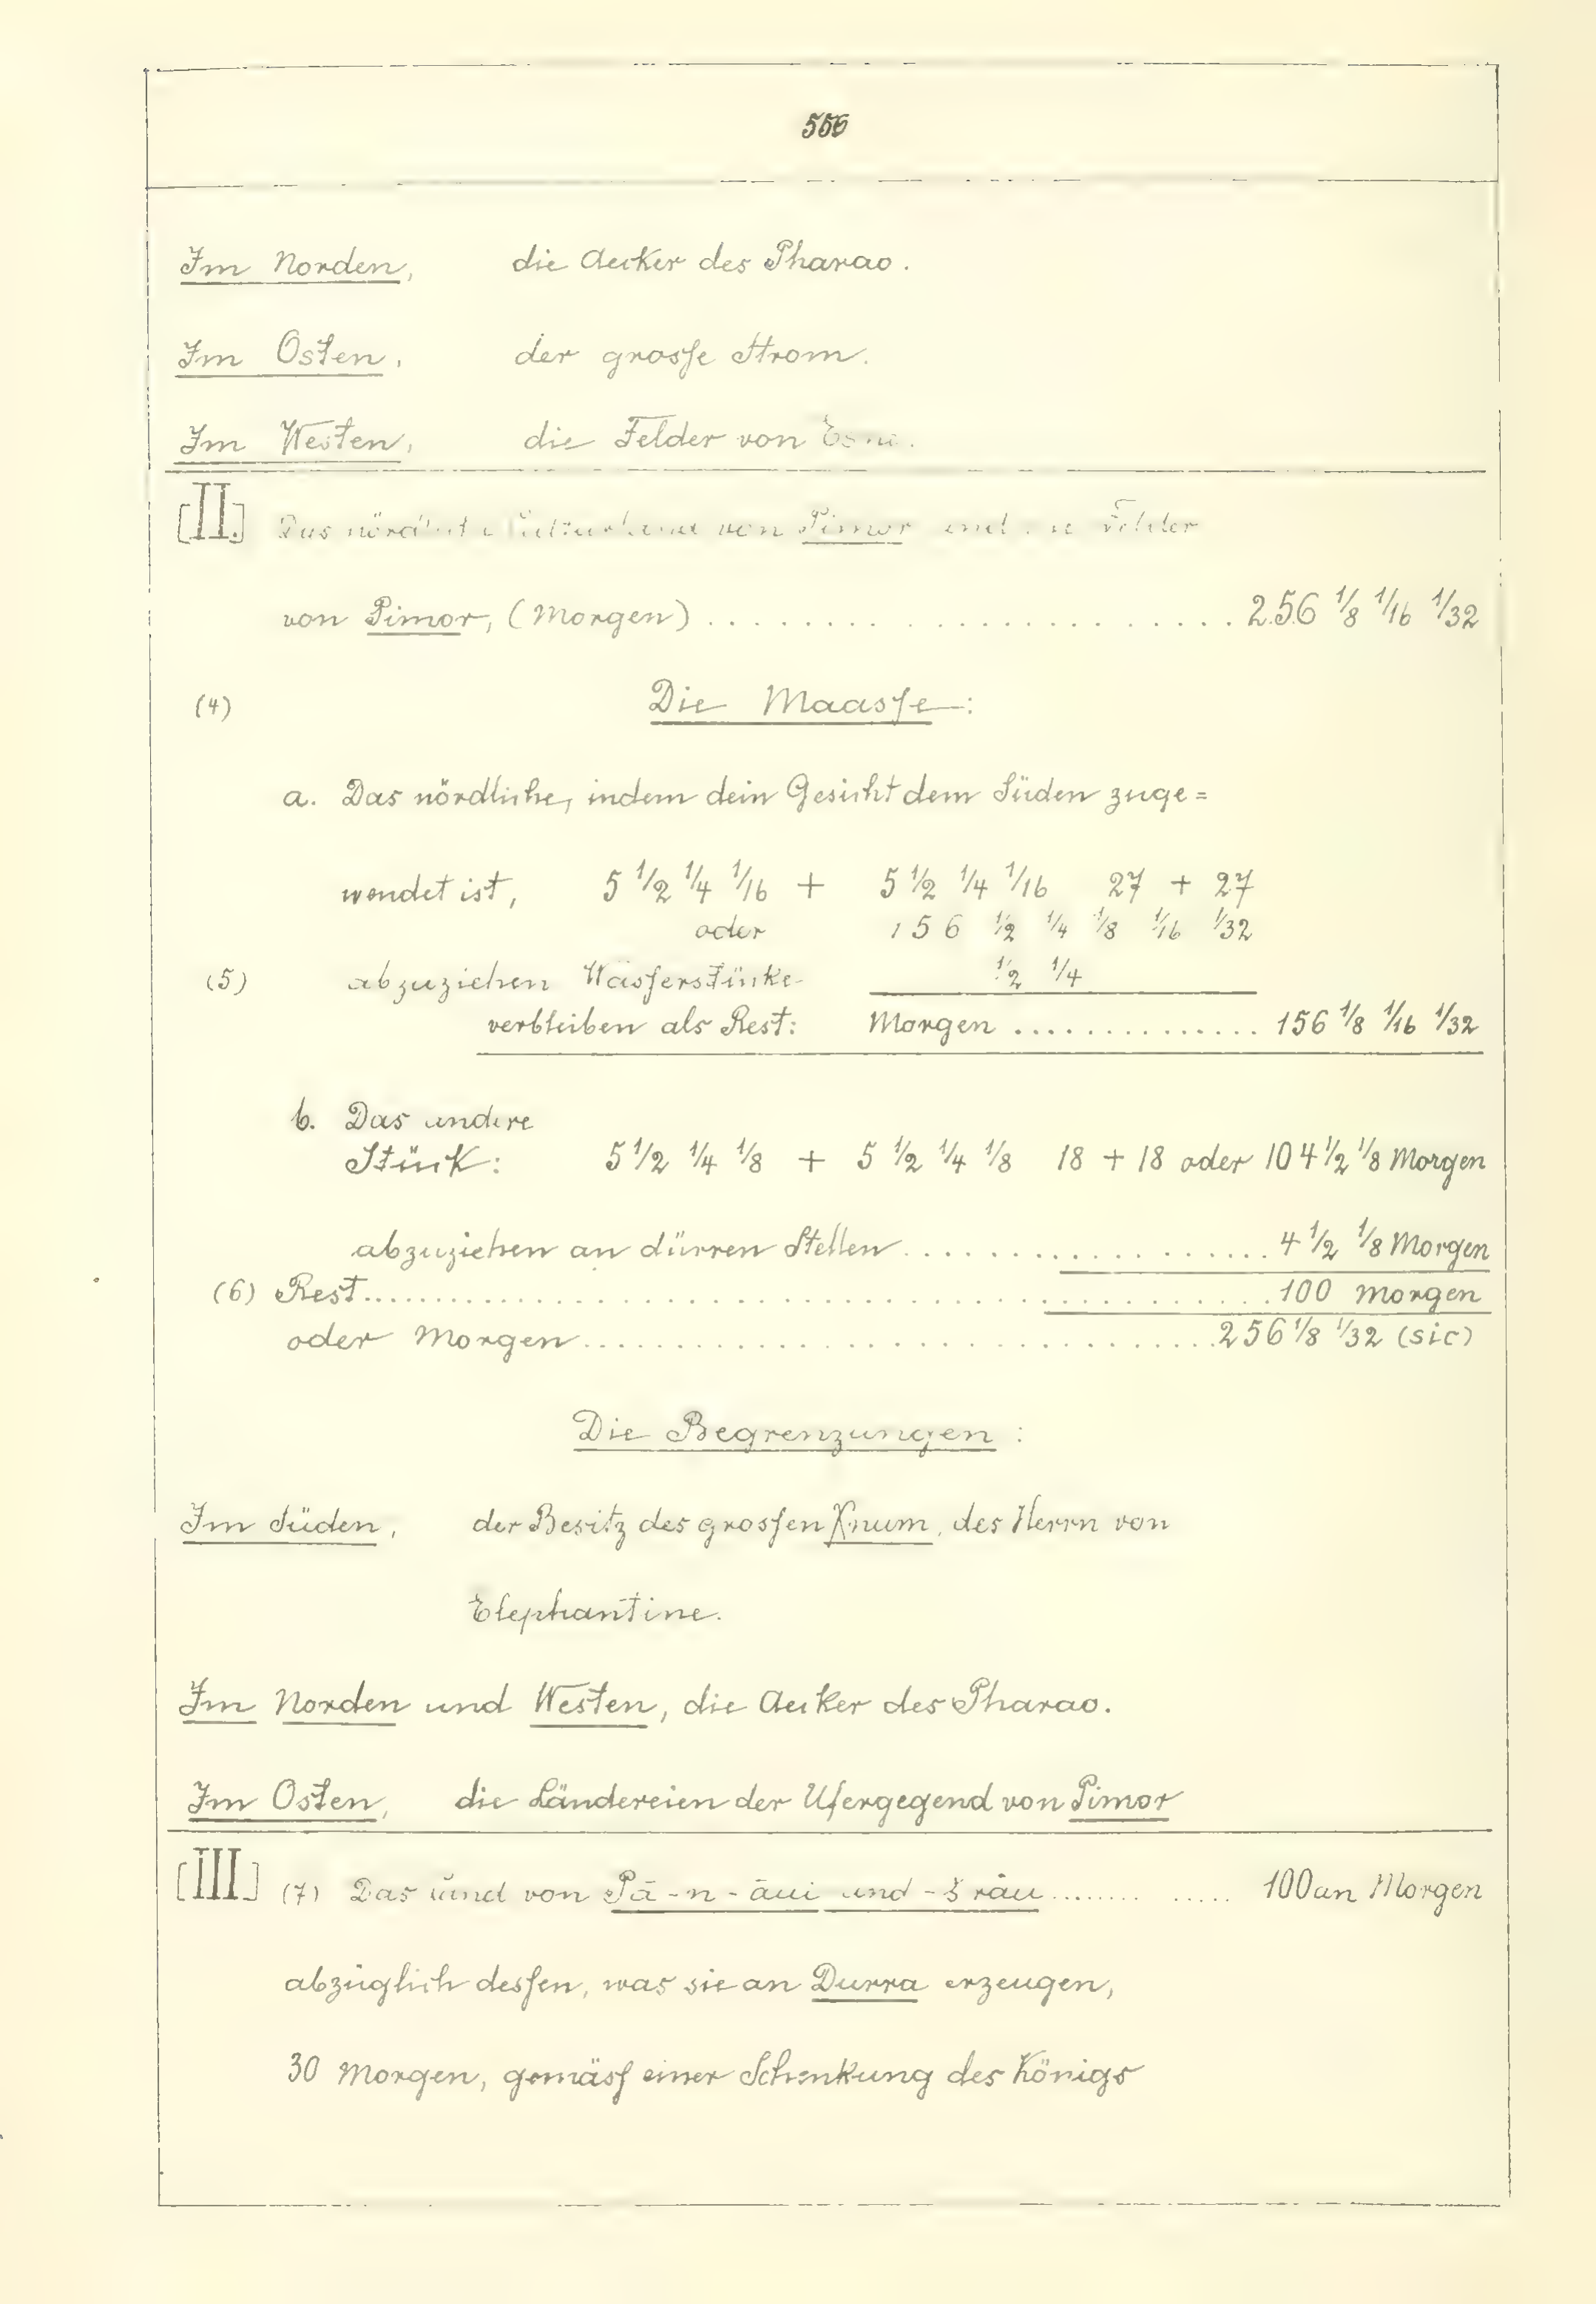 556
Im Norden, die Aecker des Pharao.
Im Osten, der grosse Strom.
Im Westen, die Felder von
[II.] Das von Pimor Felder
von Pimor, (Morgen) ........................ 256 1/8 1/16 1/32
(4) Die Maasse:
a. Das nördliche, indem dein Gesicht dem Süden zuge=
wendet ist, 5 1/2 1/4 1/16 + 5 1/2 1/4 1/16 27 + 27
oder 156 1/2 1/4 1/8 1/16 1/32
(5) abzuziehen Wasserstücke 1/2 1/4
verbleiben als Rest: Morgen ............... 156 1/8 1/16 1/32
b. Das andere
Stück: 5 1/2 1/4 1/8 + 5 1/2 1/4 1/8 18 + 18 oder 104 1/2 1/8 Morgen
abzuziehen an dürren Stellen .................... 4 1/2 1/8 Morgen
(6) Rest .................................................. 100 Morgen
oder Morgen .................................. 256 1/8 1/32 (sic)
Die Begrenzungen:
Im Süden, der Besitz des grossen Xnum, des Herrn von
Elephantine.
Im Norden und Westen, die Aecker des Pharao.
Im Osten, die Ländereien der Ufergegend von Pimor
[III.] (7) Das von Pā-n-āui und -šrāu ............. 100 an Morgen
abzüglich dessen, was sie an Durra erzeugen,
30 Morgen, gemäss einer Schenkung des Königs